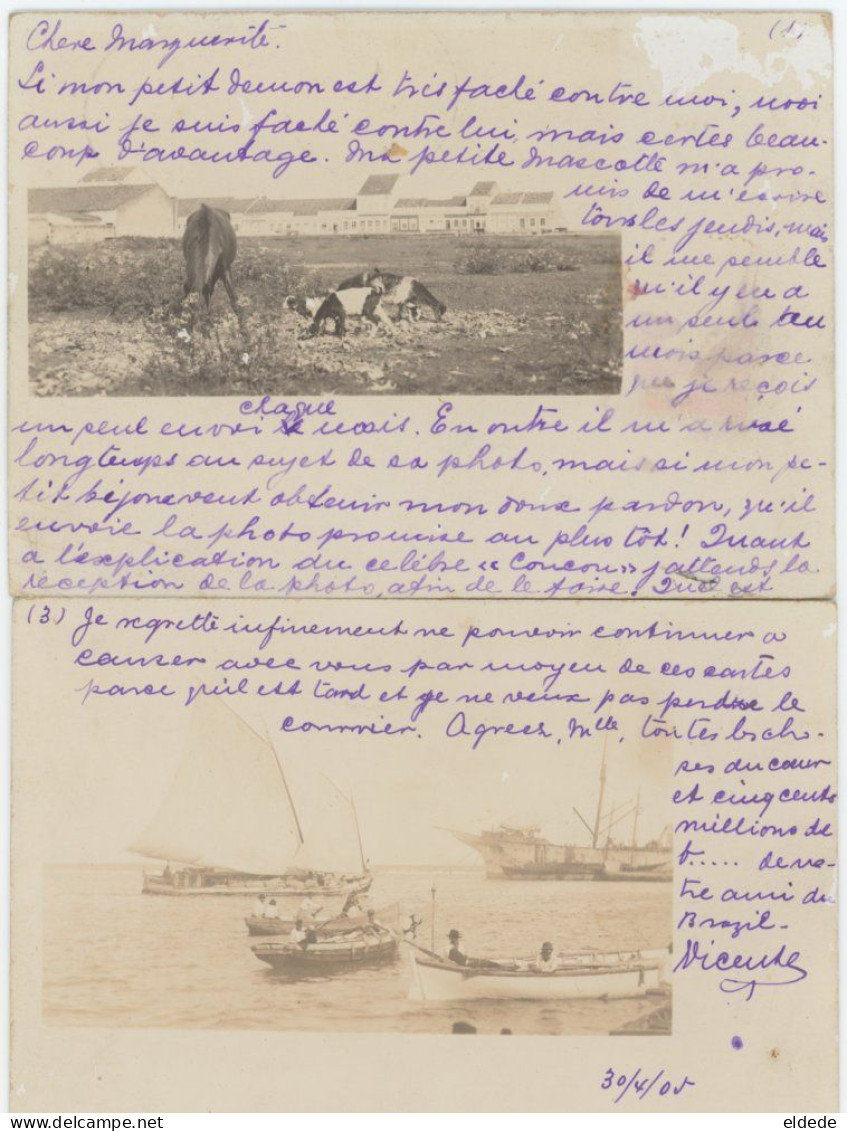 (1)
Chere Marguerite.
Si mon petit demon est très faché contre moi, moi
aussi je suis faché contre lui, mais certes beau-
coup d'avantage. Ma petite Mascotte m'a pro-
mis de m'écrire
tous les jeudis, mais
il me semble
qu'il y en a
un seul au
mois parce
que je reçois
chaque
un seul envoi mois. En outre il m'a rusé
longtemps au sujet de sa photo, mais si mon pe-
tit béjone veut obtenir mon doux pardon, qu'il
envoie la photo promise au plus tôt! Quant
a l'explication du celèbre "Concou" j'attends la
réception de la photo, afin de le faire. Quel est
(3) Je regrette infinement ne pouvoir continuer a
causer avec vous par moyen de ces cartes
parce qu'il est tard et je ne veux pas perdre le
courrier. Agreez, Mlle, toutes les cho-
ses du cœur
et cinq cents
millions de
b..... de vo-
tre ami du
Brazil-
Vicente
30/4/05
eldede